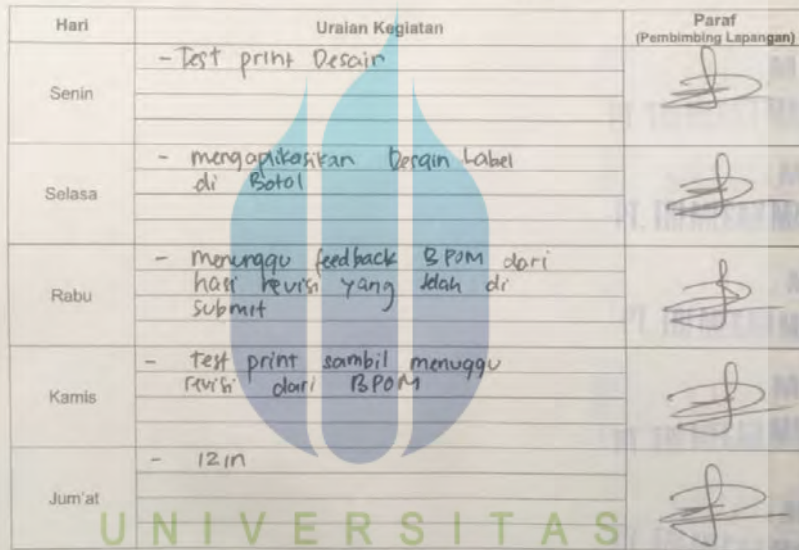 Hari Uraian Kegiatan Paraf
(Pembimbing Lapangan)
- Test print Desain
Senin
- mengaplikasikan Desain Label
di Botol
Selasa
- menunggu feedback BPOM dari
hasi revisi yang telah di
submit
Rabu
- test print sambil menuggu
revisi dari BPOM
Kamis
- Izin
Jum'at
UNIVERSITAS